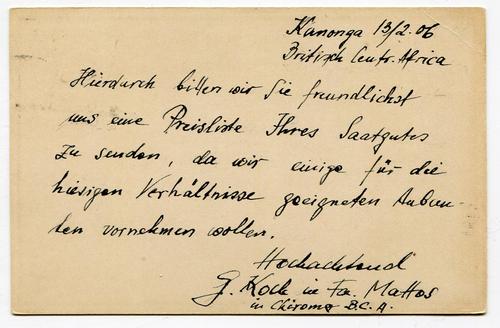 Kanonga 13/2.06
Britisch Centr. Africa
Hierdurch bitten wir Sie freundlichst
uns eine Preisliste Ihres Saatgutes
zu senden, da wir einige für die
hiesigen Verhältnisse geeigneten Anbau-
ten vornehmen wollen.
Hochachtend
G. Koch in Fa. Mattos
in Chiromo B.C.A.